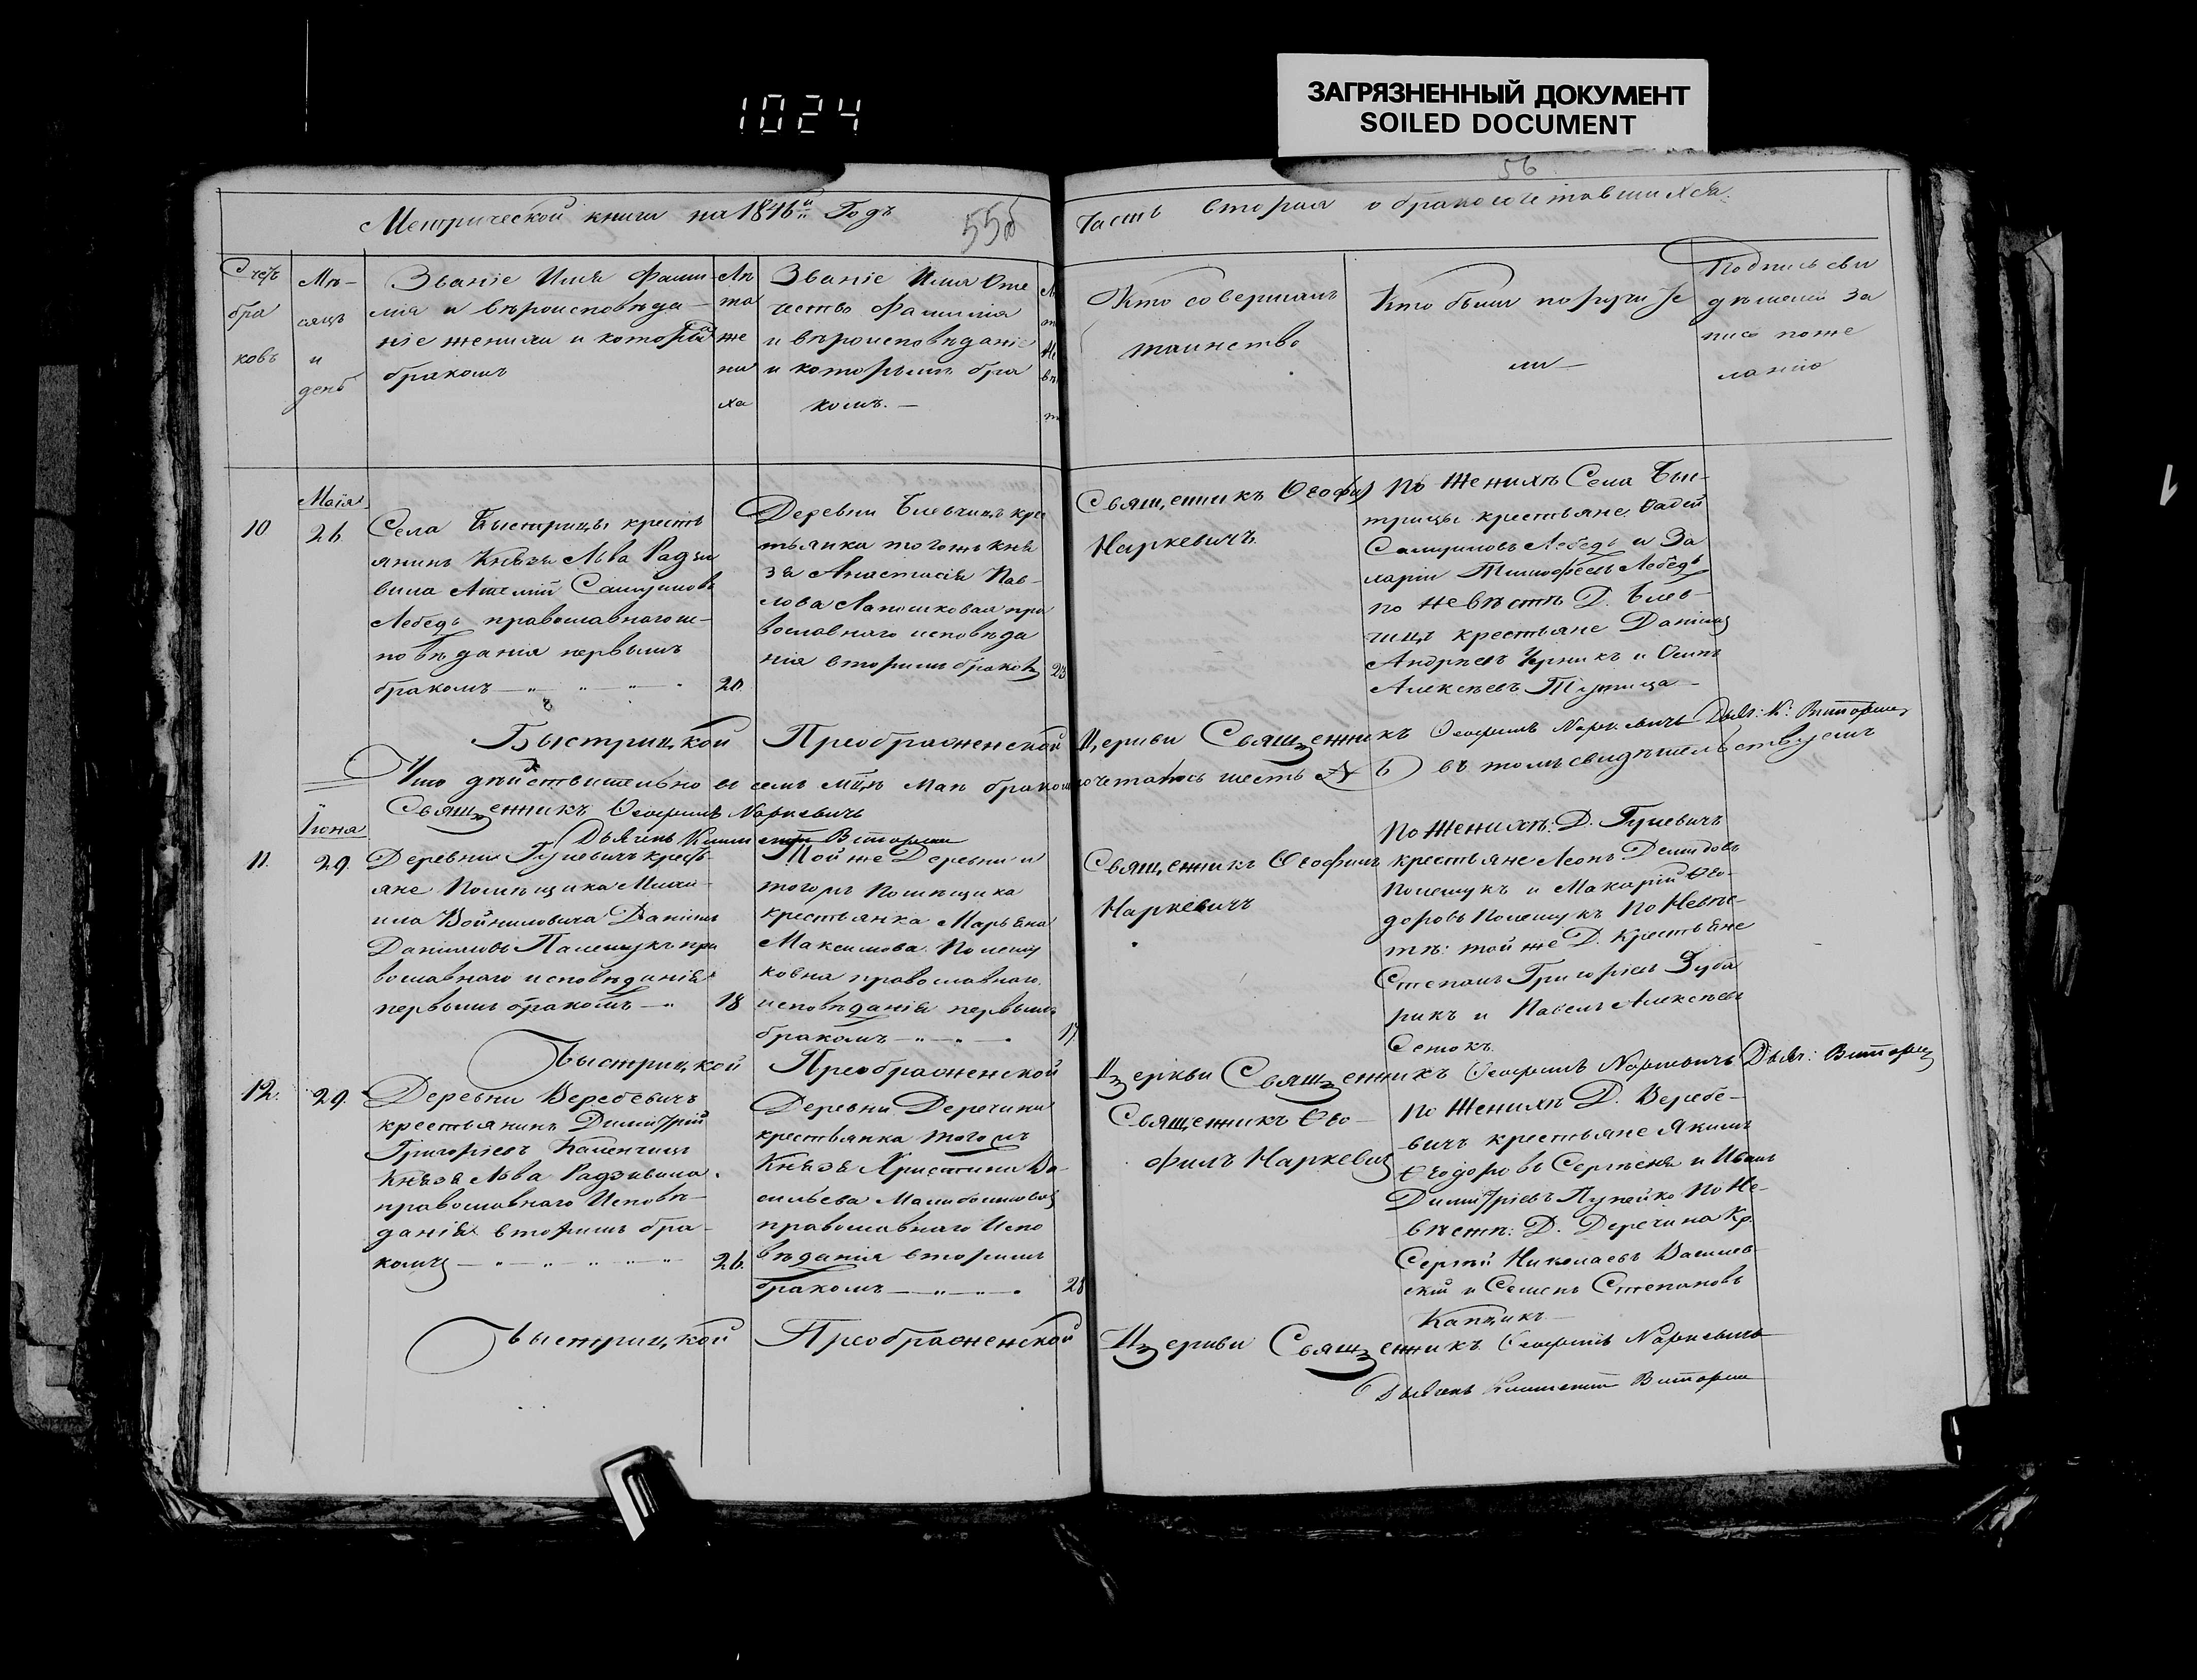 1024
ЗАГРЯЗНЕННЫЙ ДОКУМЕНТ
SOILED DOCUMENT
56
Метрической книги на 1846й Годъ
55об
Часть вторая о бракосочетавшихся.
Счетъ
бра
ковъ
Мѣ-
сяцъ
и
день
Званіе Имя Фами-
лія и вѣроисповѣда-
ніе жениха и которымъ
бракомъ
Лѣ
та
же
ни
ха
Званіе Имя Оте
чество Фамилія
и вѣроисповѣданіе
и которымъ бра
комъ. —
Кто совершалъ
таинство
Кто были поручите
ли —
Подпись сви
дѣтелей за
пись по же
ланію
Маія
10
26
Села Быстрицы кресть
янинъ Князя Льва Радзи
вила Самуиловъ
Лебедь православнаго ис-
повѣданія первымъ
бракомъ
20.
Деревни крес
тьянка тогожъ кня
зя Анастасія Пав-
лова пра
вославнаго исповѣда
нія вторымъ бракомъ
23
Священникъ Ѳеофил
Наркевичъ.
По Женихѣ Села Бы-
трицы крестьяне Фадей
Самуиловъ Лебедь и За
харій Тимофеевъ Лебедь
по Невѣстѣ Д.
чицъ крестьяне Даніил
Андреевъ и Осипъ
Алексѣевъ
Быстрицкой Преображенской Церкви Священникъ Ѳеофилъ Наркевичъ Дьяч: К:
Что дѣйствительно въ семъ мцѣ Маѣ бракосочеталось шесть № 6 въ томъ свидѣтельствуемъ
Священникъ Ѳеофилъ Наркевичъ
Дьячекъ
Іюня
11.
29.
Деревни кресть-
яне Помѣщика Миха-
ила Войниловича Даніилъ
Даніиловъ Палешукъ пра
вославнаго исповѣданія
первымъ бракомъ —
18
Той же Деревни и
тогожъ Помѣщика
крестьянка Марьяна
Максимова Полешу
ковна православнаго
исповѣданія первымъ
бракомъ
17
Священникъ Ѳеофилъ
Наркевичъ
По Женихѣ: Д.
крестьяне Леонъ Демидовъ
Полешукъ и Макарій Ѳео-
доровъ Полешукъ По Невѣс-
тѣ: той же Д. Крестьяне
Степанъ Григорьевъ Зуба
рикъ и Павелъ Алексѣевъ
Сетокъ.
Быстрицкой Преображенской Церкви Священникъ Ѳеофилъ Наркевичъ Дьяч:
12.
29.
Деревни Веребевичъ
крестьянинъ Димитрій
Григорьевъ
Князя Льва Радзивила
православнаго Исповѣ-
данія вторымъ бра-
комъ
26.
Деревни Деречина
крестьянка тогожъ
Князя Христина Ва-
сильева
православнаго Испо
вѣданія вторымъ
бракомъ
28
Священникъ Ѳео-
филъ Наркевич
По Женихѣ Д. Веребе-
вичъ крестьяне Якимъ
Ѳеодоровъ и Иванъ
Димитріевъ По Не-
вѣстѣ: Д. Деречина Кр.
Сергѣй Николаевъ Василев-
скій и Семенъ Степановъ
Быстрицкой Преображенской Церкви Священникъ Ѳеофилъ Наркевичъ
Дьячекъ
1